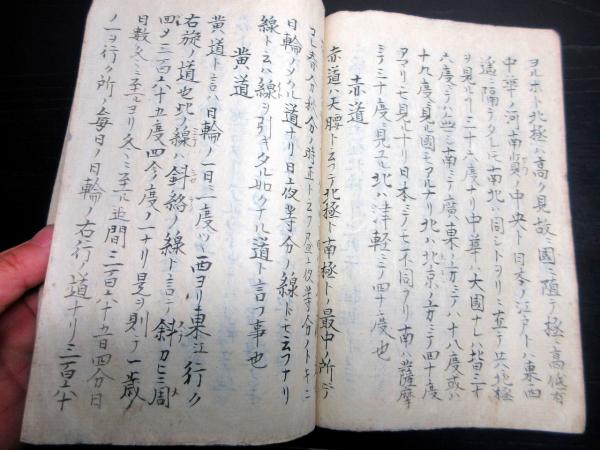 ヨルホト北極ハ高ク見故ニ國ニ随テ極ニ高低有
中華ノ河南ノ中央ト日本ノ江戸トハ東西
遥ニ隔テタレ𪜈南北ハ同シトヲリニ直テ共ニ北極
ヲ見ル三十六度ナリ中華ハ大國ナレハ北
六度ニテ南ニテ廣東ノ方ニテハ十八度或ハ
十九度ニ見ル國モアルナリ北ハ北京ノ方ニテ四十度
アマリモ見ルナリ日本ニテノモ不同アリ南ハ薩摩
ニテ三十度ニ見ユル北ハ津軽ニテ四十度也
赤道
赤道ハ天腰ト云フテ北極ト南極トノ最中ノ所ニテ
コレ春分秋分ノ時 昼夜等分ノトキニ
日輪ノメクル道ナリ日夜等分ノ線トモ云フナリ
線トハ線ヲ引キタル如クナル道ト言フ事也
黄道
黄道ト言ハ日輪ノ一日ニ一度ツヽ西ヨリ東江行ク
右旋ノ道也此ノ線ハ斜絡ノ線ト言テ斜カヒニ周
四メ三百六十五度四分度ノ一ナリ是ヲ則チ一歳ノ
日數冬至ヨリ冬至ル迠間三百六十五日四分日
ノ一ヲ行ク所ノ毎日ノ日輪ノ右行ノ道ナリ三百六十